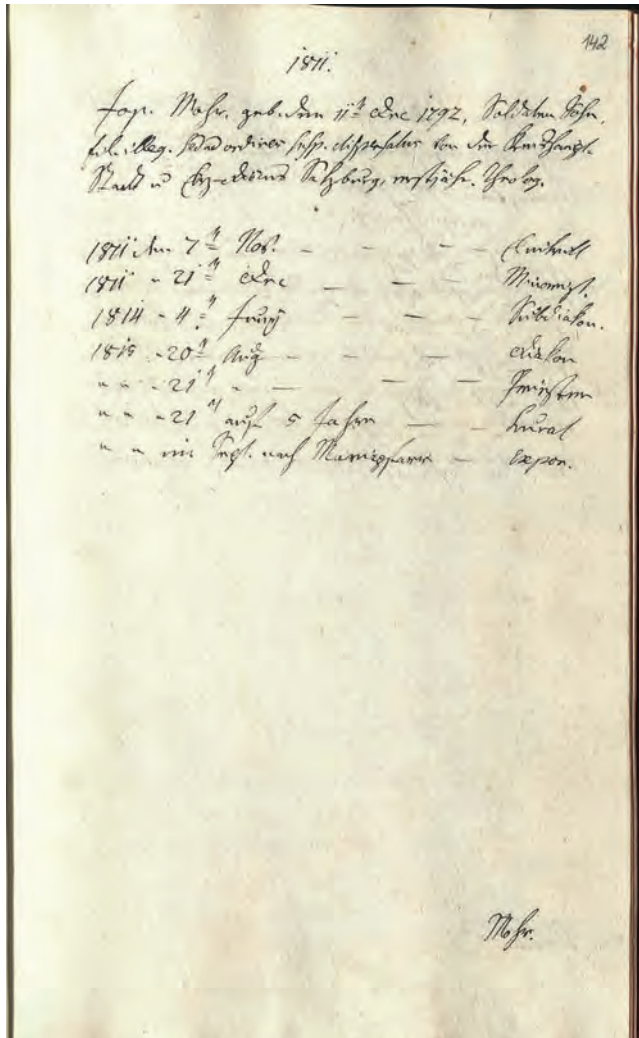 142
1811.
Jos. Mohr. geb. den 11t Dec 1792, Soldaten Sohn,
fil. illeg. sed ad ordines susp. dispensatus von der Kreishaupt-
Stadt u Salzburg, erstjähr. Theolog.
1811 den 7t Nov. — — — Eintritt
1811 - 21t Dec — — — Minorist.
1814 - 4t Juny — — — Subdiakon.
1815 - 20t Aug — — — Diakon
" " - 21t " — — — Priester
" " - 21t auf 5 Jahre — — Kural
" " im Sept. nach Mariapfarr — Expon.
Mohr.